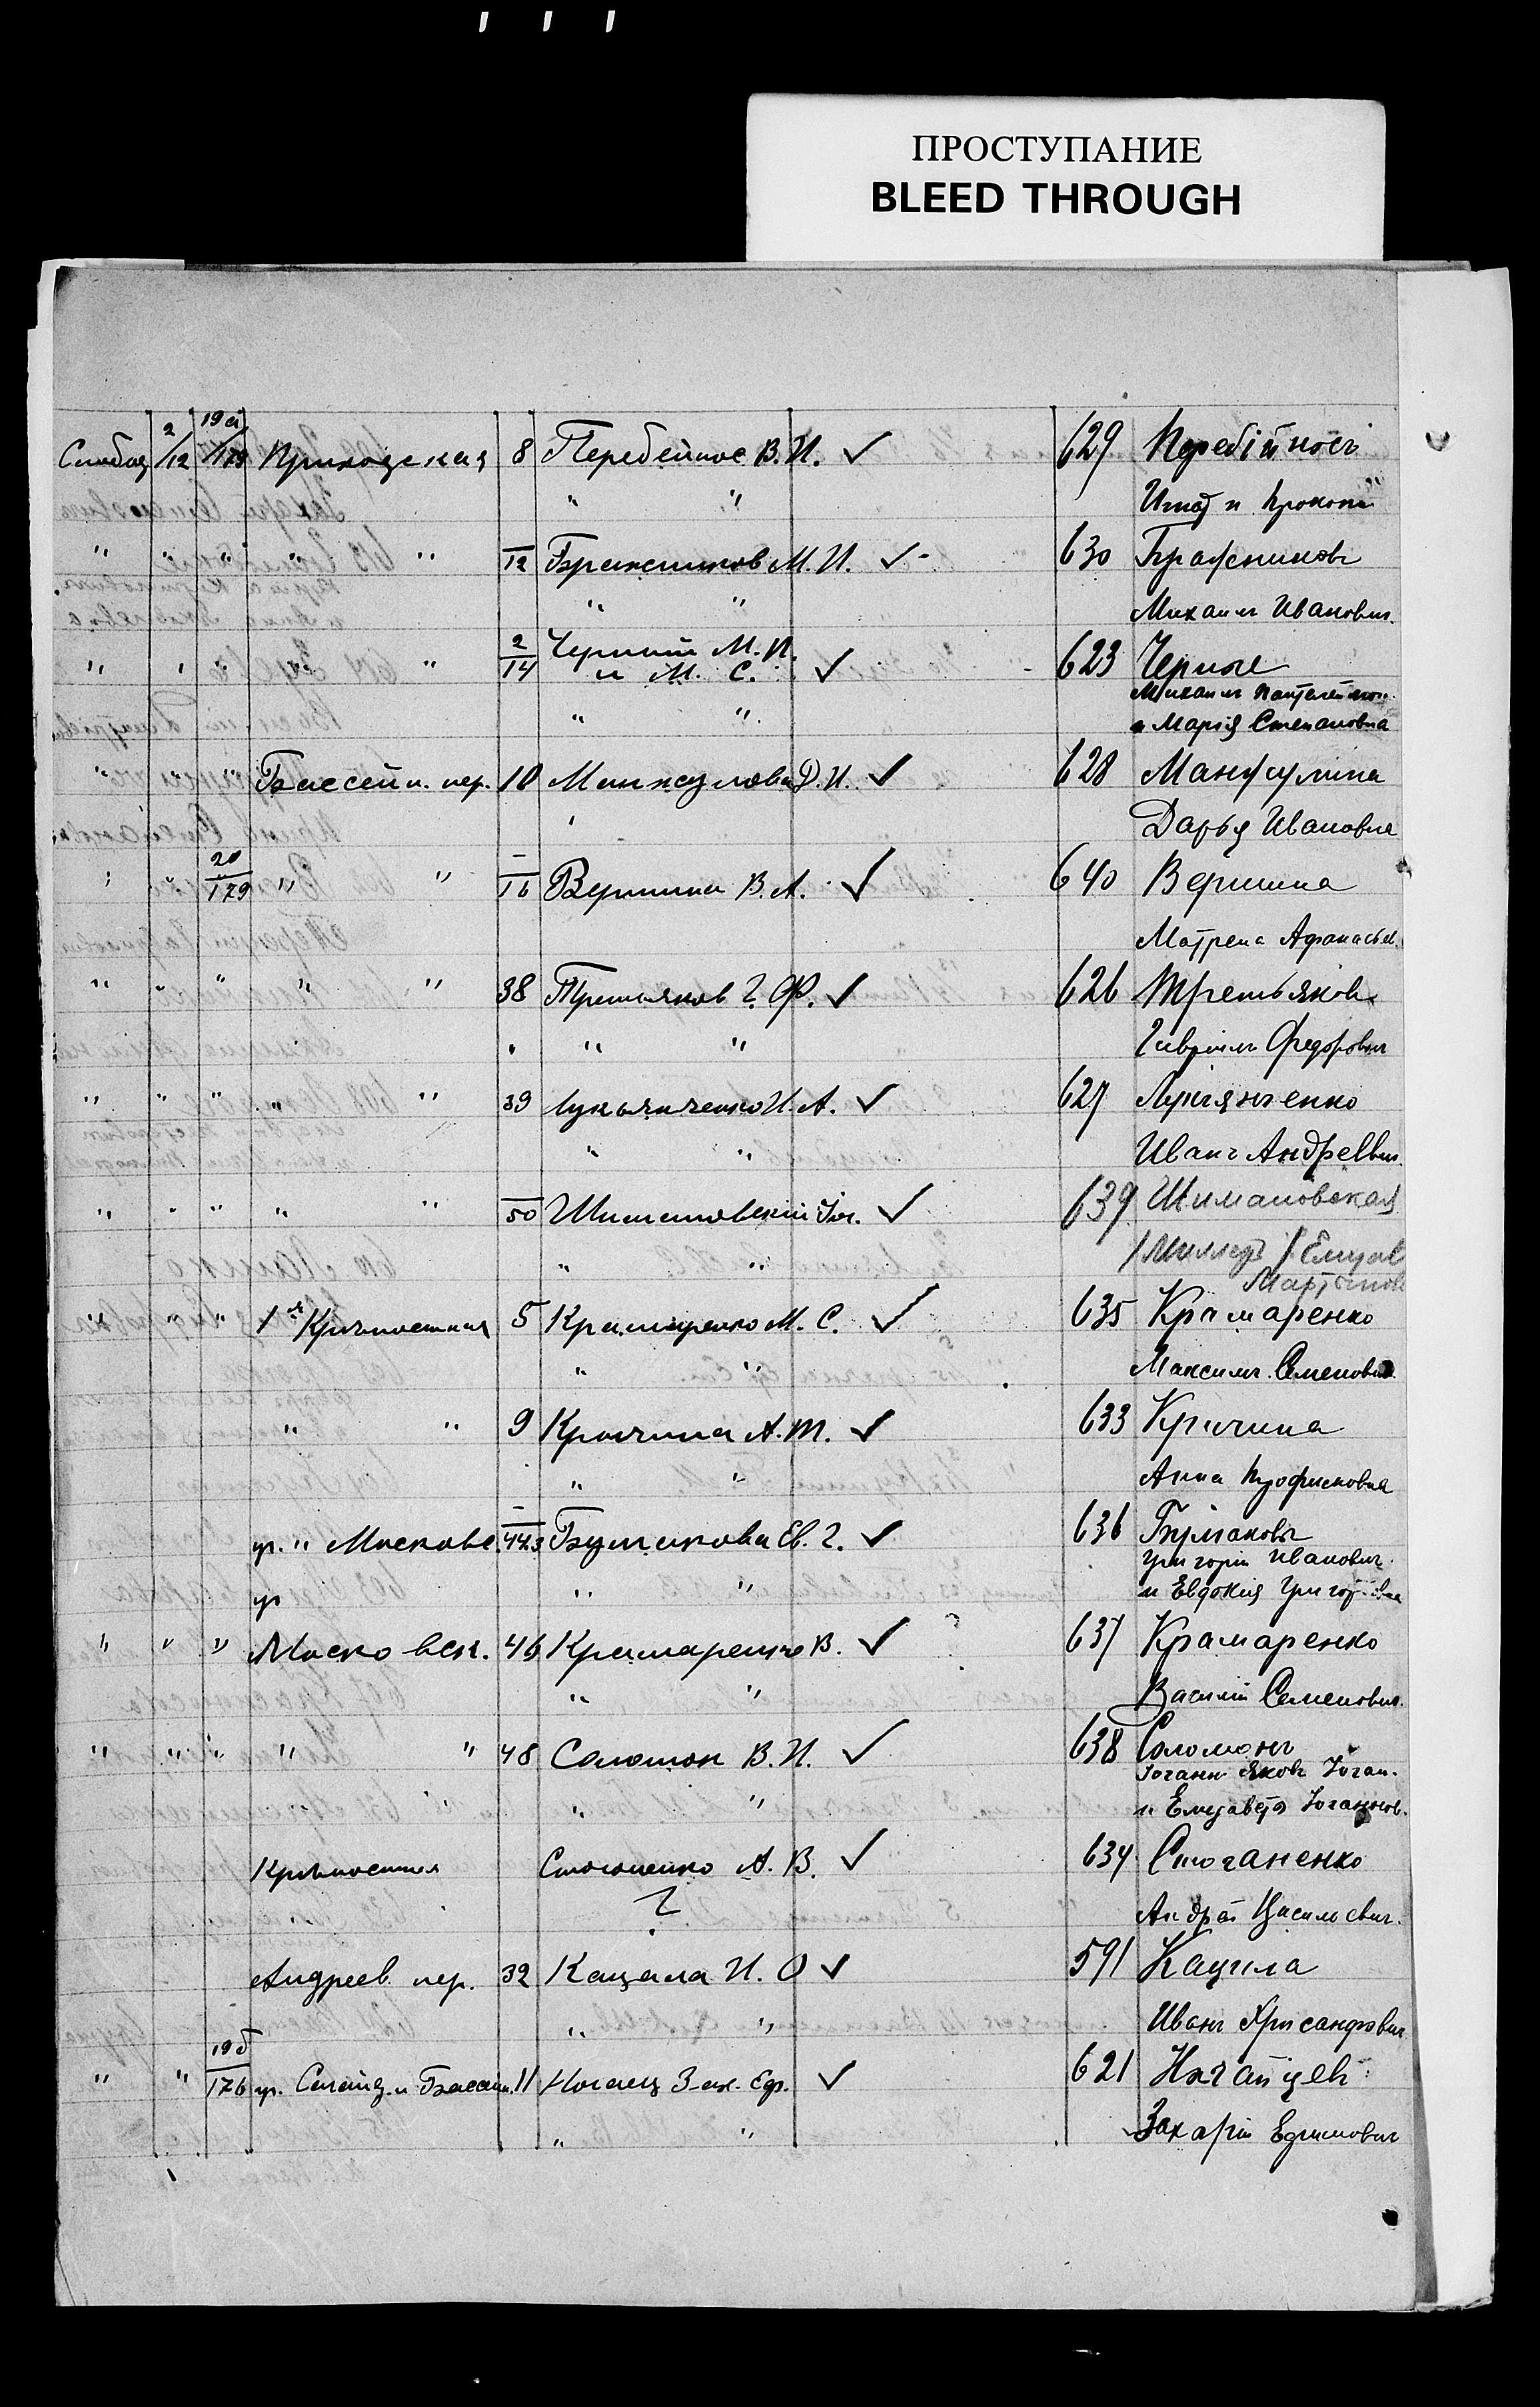 ПРОСТУПАНИЕ
BLEED THROUGH
Слобод 2/12 19а/178 Приходская 8 Перебейнос В. И. ✓ 629 Перебійносъ
" " Игнат и Прокопи
" " " " " 12 Бражников М. И. ✓ 630 Бражниковъ
" " Михаилъ Иванович.
" " " " " 2/14 Черный М. П. и М. С. ✓ 623 Черные
Михаилъ Пантелеймон.
" " и Марія Степановна
" " " Бассейн. пер. 10 Манжулова Д. И. ✓ 628
" Дарья Ивановна
" " 20/179 " " 16 Вершина В. А. ✓ 640 Вершина
Матрена Афанасьев.
" " " " " 38 Третьяков Г. Ф. ✓ 626 Третьяковъ
" " " Гавріилъ Федорович
" " " " " 39 Лукьянченко И. А. ✓ 627 Лукьянченко
" " Иванъ Андреевич.
" " " " " 50 Шимановский ✓ 639 Шимановская
" "
" " " 1я Крѣпостная 5 Крамаренко М. С. ✓ 635 Крамаренко
" " Максимъ Семенович.
" " 9 Кричина А. Т. ✓ 633 Кричина
" " Анна Трофимовна
уг. " Московс. 44.3 Бурлакова Ев. Г. ✓ 636 Бурлаковы
Григорій Иванович
уг " " и Евдокия Григор
" " " Московск. 46 Крамаренко В. ✓ 637 Крамаренко
" " Василій Семенович.
" " " " " 48 Саломон В. И. ✓ 638 Соломонъ
Іоганн Яковъ Іоган.
" " и Елизавета Іоганнов.
Крѣпостная Стоганенко А. В. ✓ 634 Стоганенко
? Андрей Васильевич.
Андреев. пер. 32 Кацала И. О ✓ 591 Кацала
" " Иванъ
" " 19б/176 11 Ногаец Зах. Еф. ✓ 621
" " Захарій Ефимович